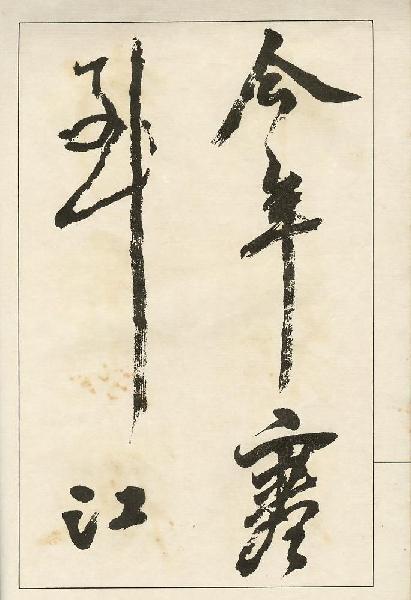 今年寒
到江